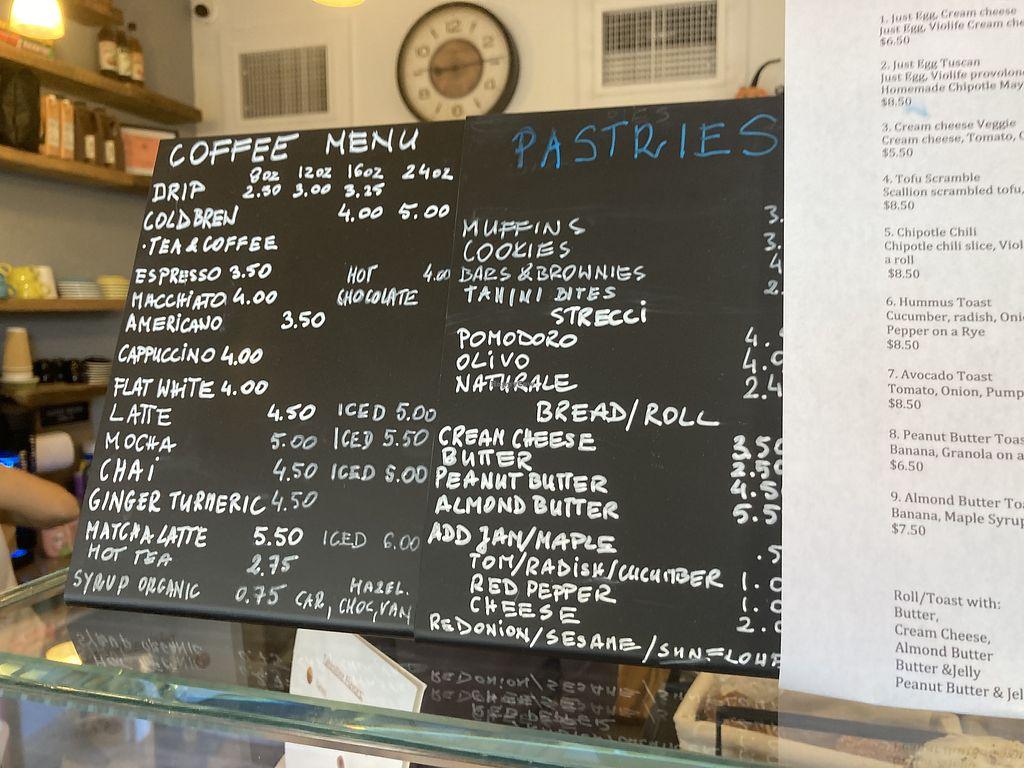 COFFEE MENU
8oz 12oz 16oz 24oz
DRIP 2.50 3.00 3.25
COLDBREN 4.00 5.00
·TEA & COFFEE
ESPRESSO 3.50 HOT 4.00
MACCHIATO 4.00 CHOCOLATE
AMERICANO 3.50
CAPPUCCINO 4.00
FLAT WHITE 4.00
LATTE 4.50 ICED 5.00
MOCHA 5.00 ICED 5.50
CHAI 4.50 ICED 5.00
GINGER TURMERIC 4.50
MATCHA LATTE 5.50 ICED 6.00
HOT TEA 2.75
SYRUP ORGANIC 0.75 CAR, HAZEL. CHOC, VAN
PASTRIES
MUFFINS 3.
COOKIES 3.
BARS & BROWNIES 4
TAHINI BITES 2.
STRECCI
POMODORO 4.
OLIVO 4.0
NATURALE 2.4
BREAD/ROLL
CREAM CHEESE 3.50
BUTTER 2.50
PEANUT BUTTER 4.5
ALMOND BUTTER 5.5
ADD JAM/MAPLE .5
TOM/RADISH/CUCUMBER 1.0
RED PEPPER 1.0
CHEESE 2.0
RED ONION/SESAME/SUNFLOWE
1. Just Egg, Cream cheese
Just Egg, Violife Cream che
$6.50
2. Just Egg Tuscan
Just Egg, Violife provolon
Homemade Chipotle May
$8.50
3. Cream cheese Veggie
Cream cheese, Tomato,
$5.50
4. Tofu Scramble
Scallion scrambled tofu,
$8.50
5. Chipotle Chili
Chipotle chili slice, Viol
a roll
$8.50
6. Hummus Toast
Cucumber, radish, Oni
Pepper on a Rye
$8.50
7. Avocado Toast
Tomato, Onion, Pump
$8.50
8. Peanut Butter Toas
Banana, Granola on a
$6.50
9. Almond Butter To
Banana, Maple Syrup
$7.50
Roll/Toast with:
Butter,
Cream Cheese,
Almond Butter
Butter &Jelly
Peanut Butter & Jel